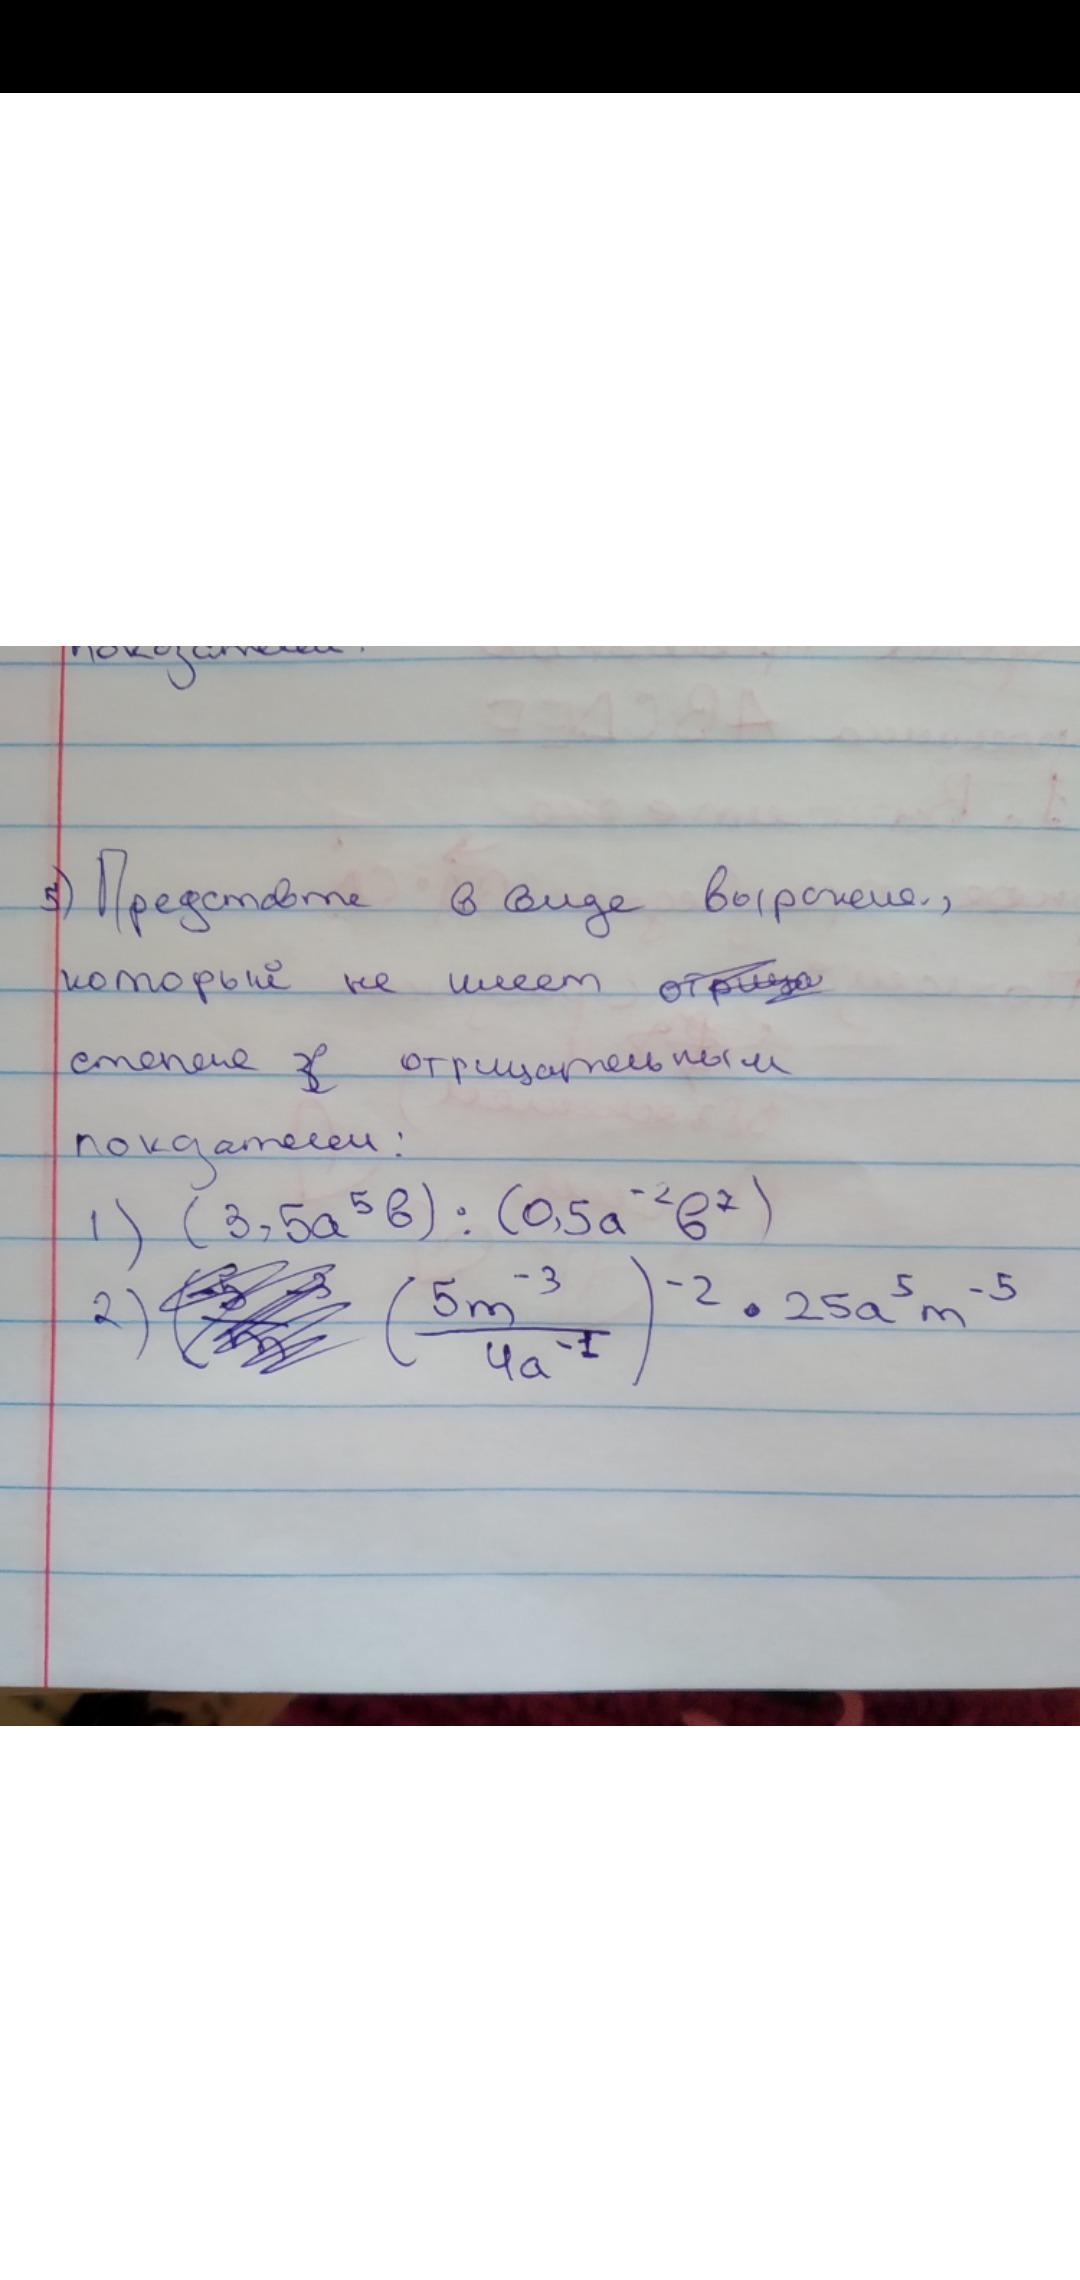 показатели.
3) Представте в виде выражение,
который не имеет
степене с отрицательным
покдатели:
1) (3,5a⁵b) : (0,5a⁻²b⁷)
2) (5m⁻³/4a⁻¹)⁻² • 25a⁵m⁻⁵